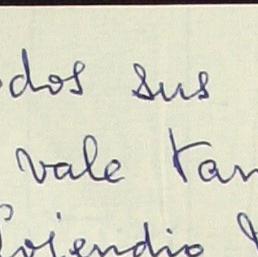 odos sus
vale tan
Lojendio